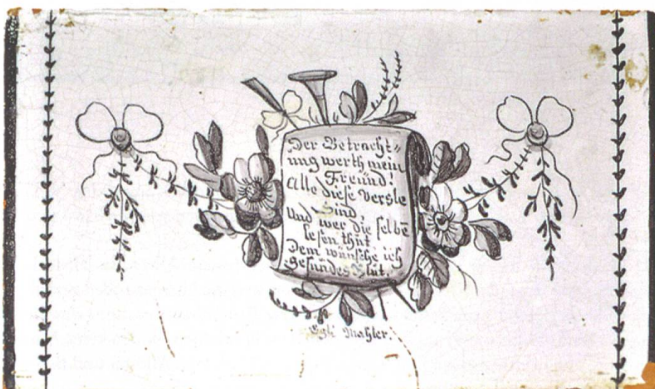 Der Betracht=
ung werth mein
Freünd!
Alle diese Versle
Sind,
Und wer die selbe
lesen thut.
Dem wünsche ich
Gesundes Blut.
Mahler.